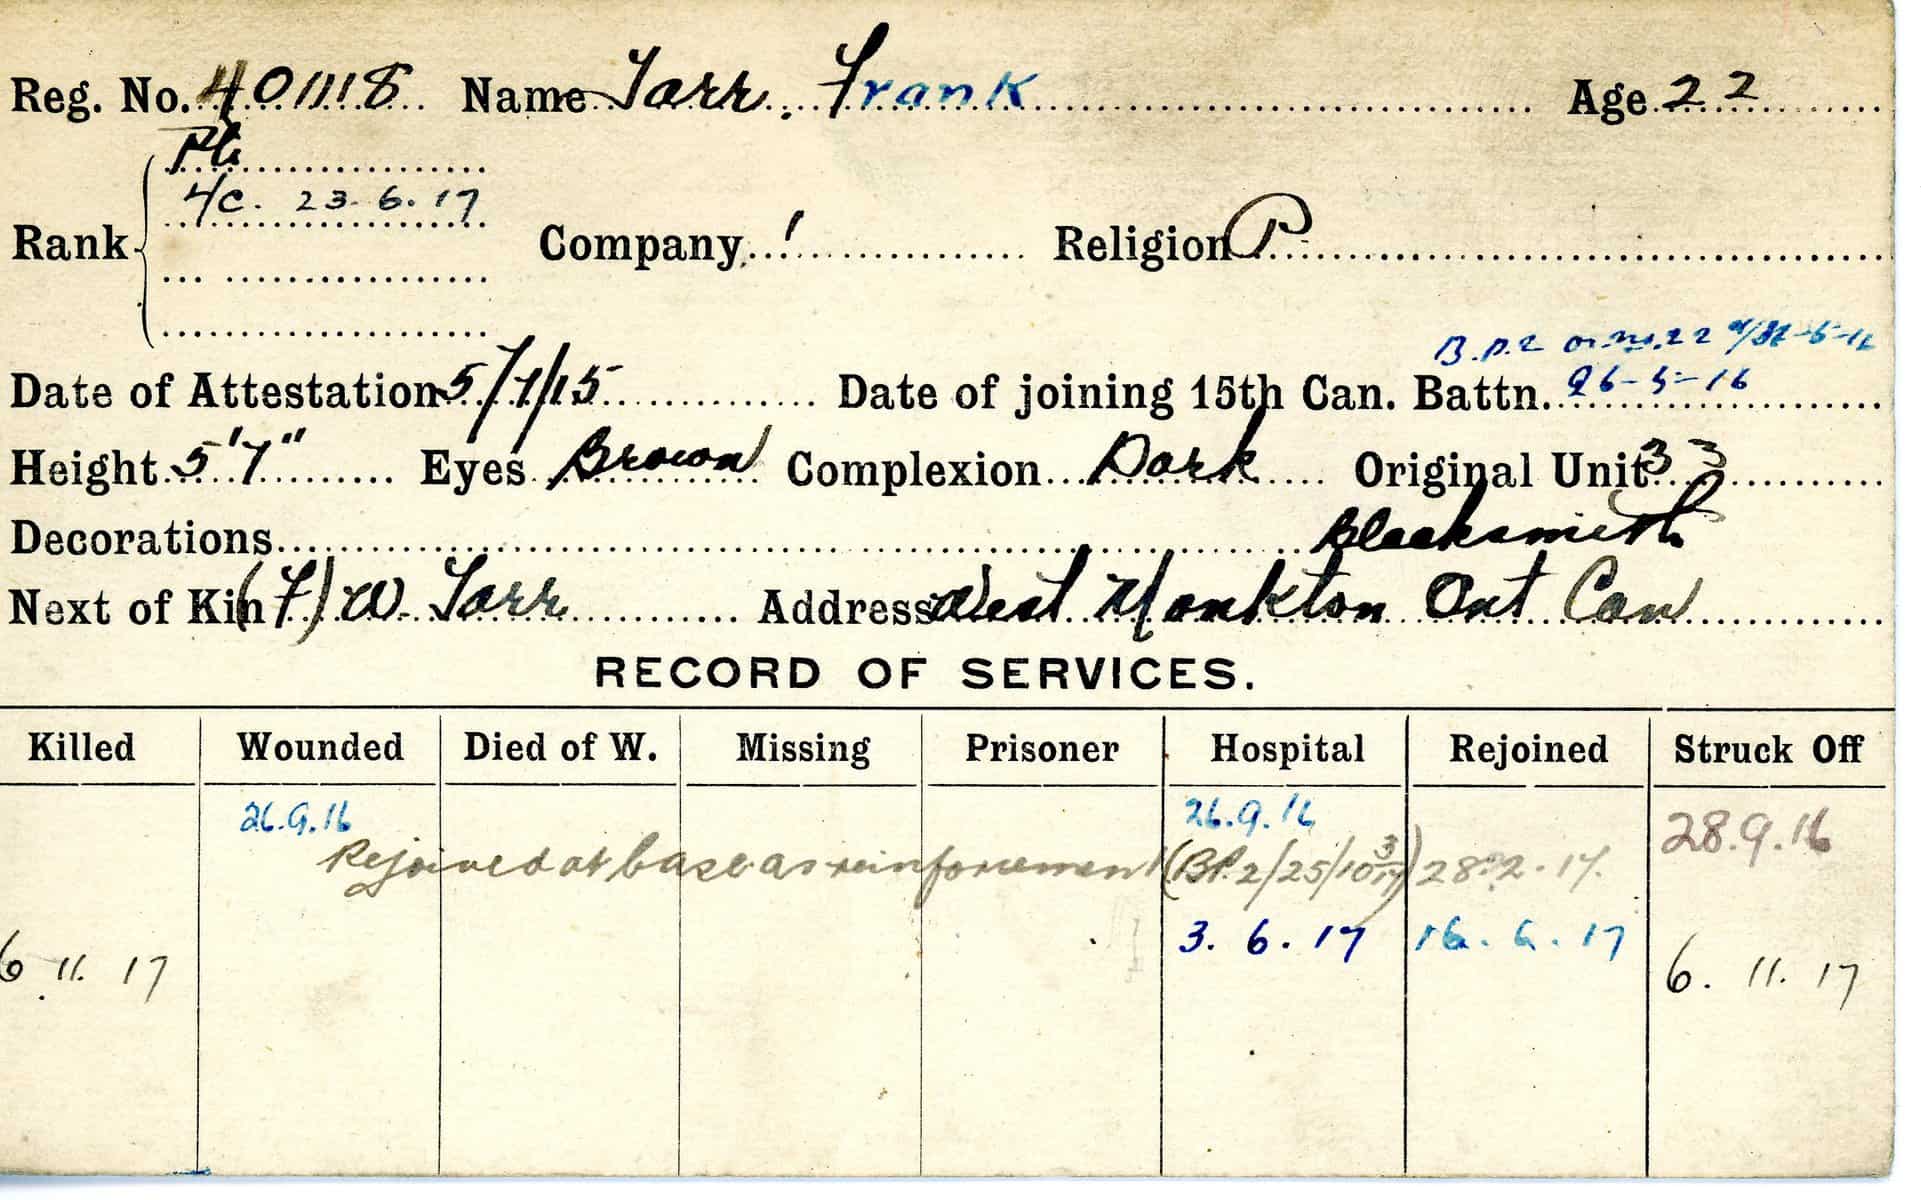 Reg. No. 401118 Name Tarr, Frank Age 22
Pte
L/C. 23.6.17
Rank Company 1 Religion P
B.P.2
Date of Attestation 5/7/15 Date of joining 15th Can. Battn. 26-5-16
Height 5'7" Eyes Brown Complexion Dark Original Unit 33
Decorations Blacksmith
Next of Kin (F) W Tarr Address West Monkton Ont Can
RECORD OF SERVICES.
Killed Wounded Died of W. Missing Prisoner Hospital Rejoined Struck Off
26.9.16 26.9.16 28.9.16
Rejoined at base as reinforcement (BP.2/25/10 3/17) 28.2.17.
3.6.17 16.6.17
6 11. 17 6. 11. 17